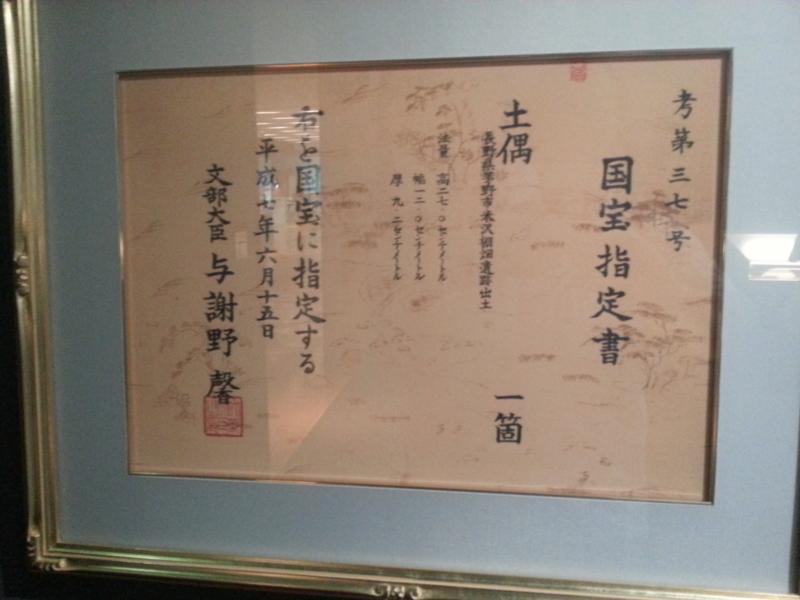 考第三七号
国宝指定書
土偶 一箇
長野県茅野市米沢棚畑遺跡出土
法量 高二七・〇センチメートル
幅一二・〇センチメートル
厚 九・二センチメートル
右を国宝に指定する
平成七年六月十五日
文部大臣 与謝野 馨